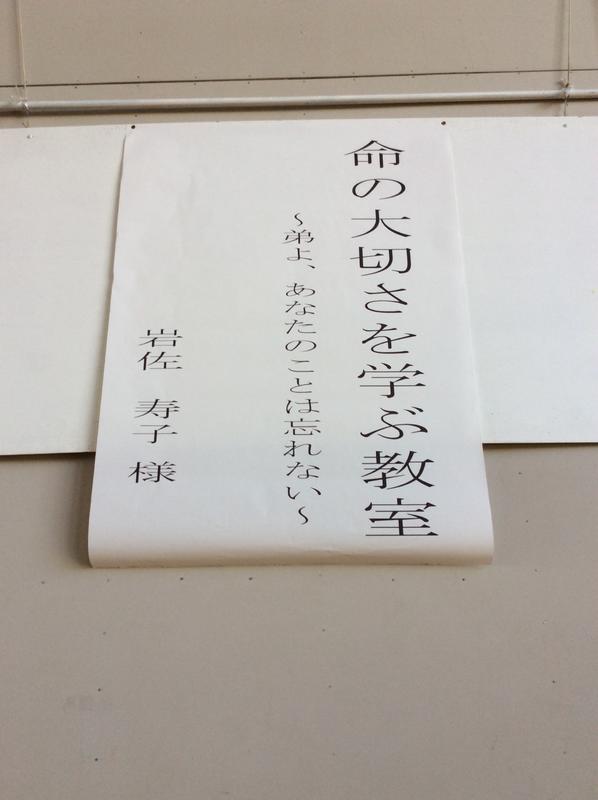 命の大切さを学ぶ教室
～弟よ、あなたのことは忘れない～
岩佐　寿子　様